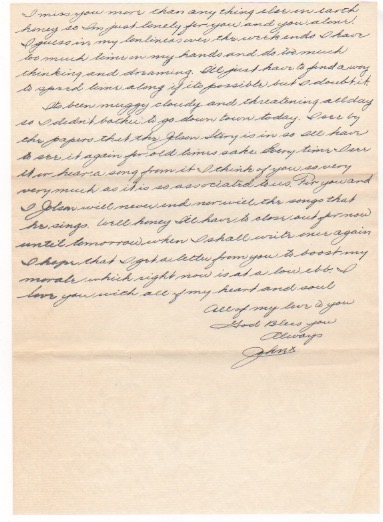 I miss you more than any thing else in earth
honey so I'm just lonely for you and you alone.
I guess in my lonliness over the week ends I have
too much time in my hands and do too much
thinking and dreaming. I'll just have to find a way
to speed time along if its possible but I doubt it.
Its been muggy cloudy and threatening all day
so I didn't bother to go down town today. I see by
the papers that the Jolson Story is in so I'll have
to see it again for old times sake. Every time I see
it or hear a song from it I think of you so very
very much as it is so associated to us. For you and
I Jolson will never end nor will the songs that
he sings. Well honey I'll have to close out for now
until tomorrow when I shall write once again
I hope that I get a letter from you to boost my
morale which right now is at a low ebb. I
love you with all of my heart and soul
All of my love to you
God Bless you
Always
John